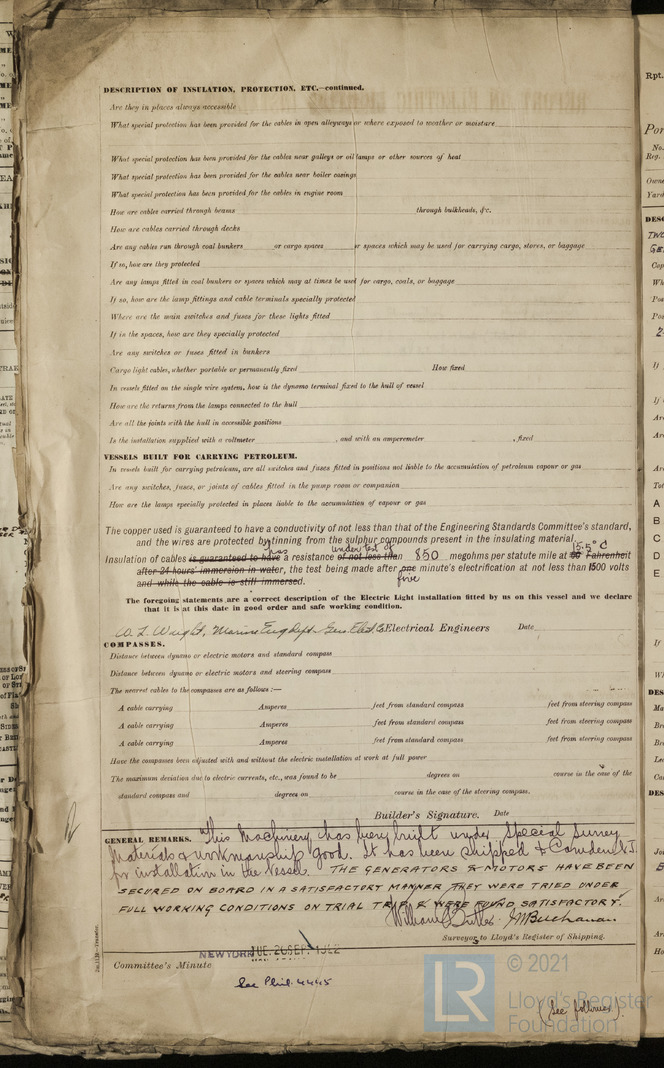 DESCRIPTION OF INSULATION, PROTECTION, ETC.—continued.
Are they in places always accessible
What special protection has been provided for the cables in open alleyways or where exposed to weather or moisture
What special protection has been provided for the cables near galleys or oil lamps or other sources of heat
What special protection has been provided for the cables near boiler casings
What special protection has been provided for the cables in engine room
How are cables carried through beams through bulkheads, &c.
How are cables carried through decks
Are any cables run through coal bunkers or cargo spaces or spaces which may be used for carrying cargo, stores, or baggage
If so, how are they protected
Are any lamps fitted in coal bunkers or spaces which may at times be used for cargo, coals, or baggage
If so, how are the lamp fittings and cable terminals specially protected
Where are the main switches and fuses for these lights fitted
If in the spaces, how are they specially protected
Are any switches or fuses fitted in bunkers
Cargo light cables, whether portable or permanently fixed How fixed
In vessels fitted on the single wire system, how is the dynamo terminal fixed to the hull of vessel
How are the returns from the lamps connected to the hull
Are all the joints with the hull in accessible positions
Is the installation supplied with a voltmeter , and with an amperemeter , fixed
VESSELS BUILT FOR CARRYING PETROLEUM.
In vessels built for carrying petroleum, are all switches and fuses fitted in positions not liable to the accumulation of petroleum vapour or gas
Are any switches, fuses, or joints of cables fitted in the pump room or companion
How are the lamps specially protected in places liable to the accumulation of vapour or gas
The copper used is guaranteed to have a conductivity of not less than that of the Engineering Standards Committee's standard,
and the wires are protected by tinning from the sulphur compounds present in the insulating material.
has under test of 15.5° C
Insulation of cables is guaranteed to have a resistance of not less than 850 megohms per statute mile at 60° Fahrenheit
after 24 hours' immersion in water, the test being made after one minute's electrification at not less than 1500 volts
and while the cable is still immersed. five
The foregoing statements are a correct description of the Electric Light installation fitted by us on this vessel and we declare
that it is at this date in good order and safe working condition.
Electrical Engineers Date
COMPASSES.
Distance between dynamo or electric motors and standard compass
Distance between dynamo or electric motors and steering compass
The nearest cables to the compasses are as follows:—
A cable carrying Amperes feet from standard compass feet from steering compass
A cable carrying Amperes feet from standard compass feet from steering compass
A cable carrying Amperes feet from standard compass feet from steering compass
Have the compasses been adjusted with and without the electric installation at work at full power
The maximum deviation due to electric currents, etc., was found to be degrees on course in the case of the
standard compass and degrees on course in the case of the steering compass.
Builder's Signature. Date
GENERAL REMARKS. This Machinery has been built under Special Survey
Materials & workmanship good. It has been shipped to Camden N.J.
for installation in the Vessel. THE GENERATORS & MOTORS HAVE BEEN
SECURED ON BOARD IN A SATISFACTORY MANNER THEY WERE TRIED UNDER
FULL WORKING CONDITIONS ON TRIAL TRIP & WERE FOUND SATISFACTORY.
William Butler. J M Buchanan.
Surveyors to Lloyd's Register of Shipping.
NEW YORK TUE. 26 SEP. 1922
Committee's Minute
See Phil. 4445
(See follows).
LR © 2021
Lloyd's Register
Foundation